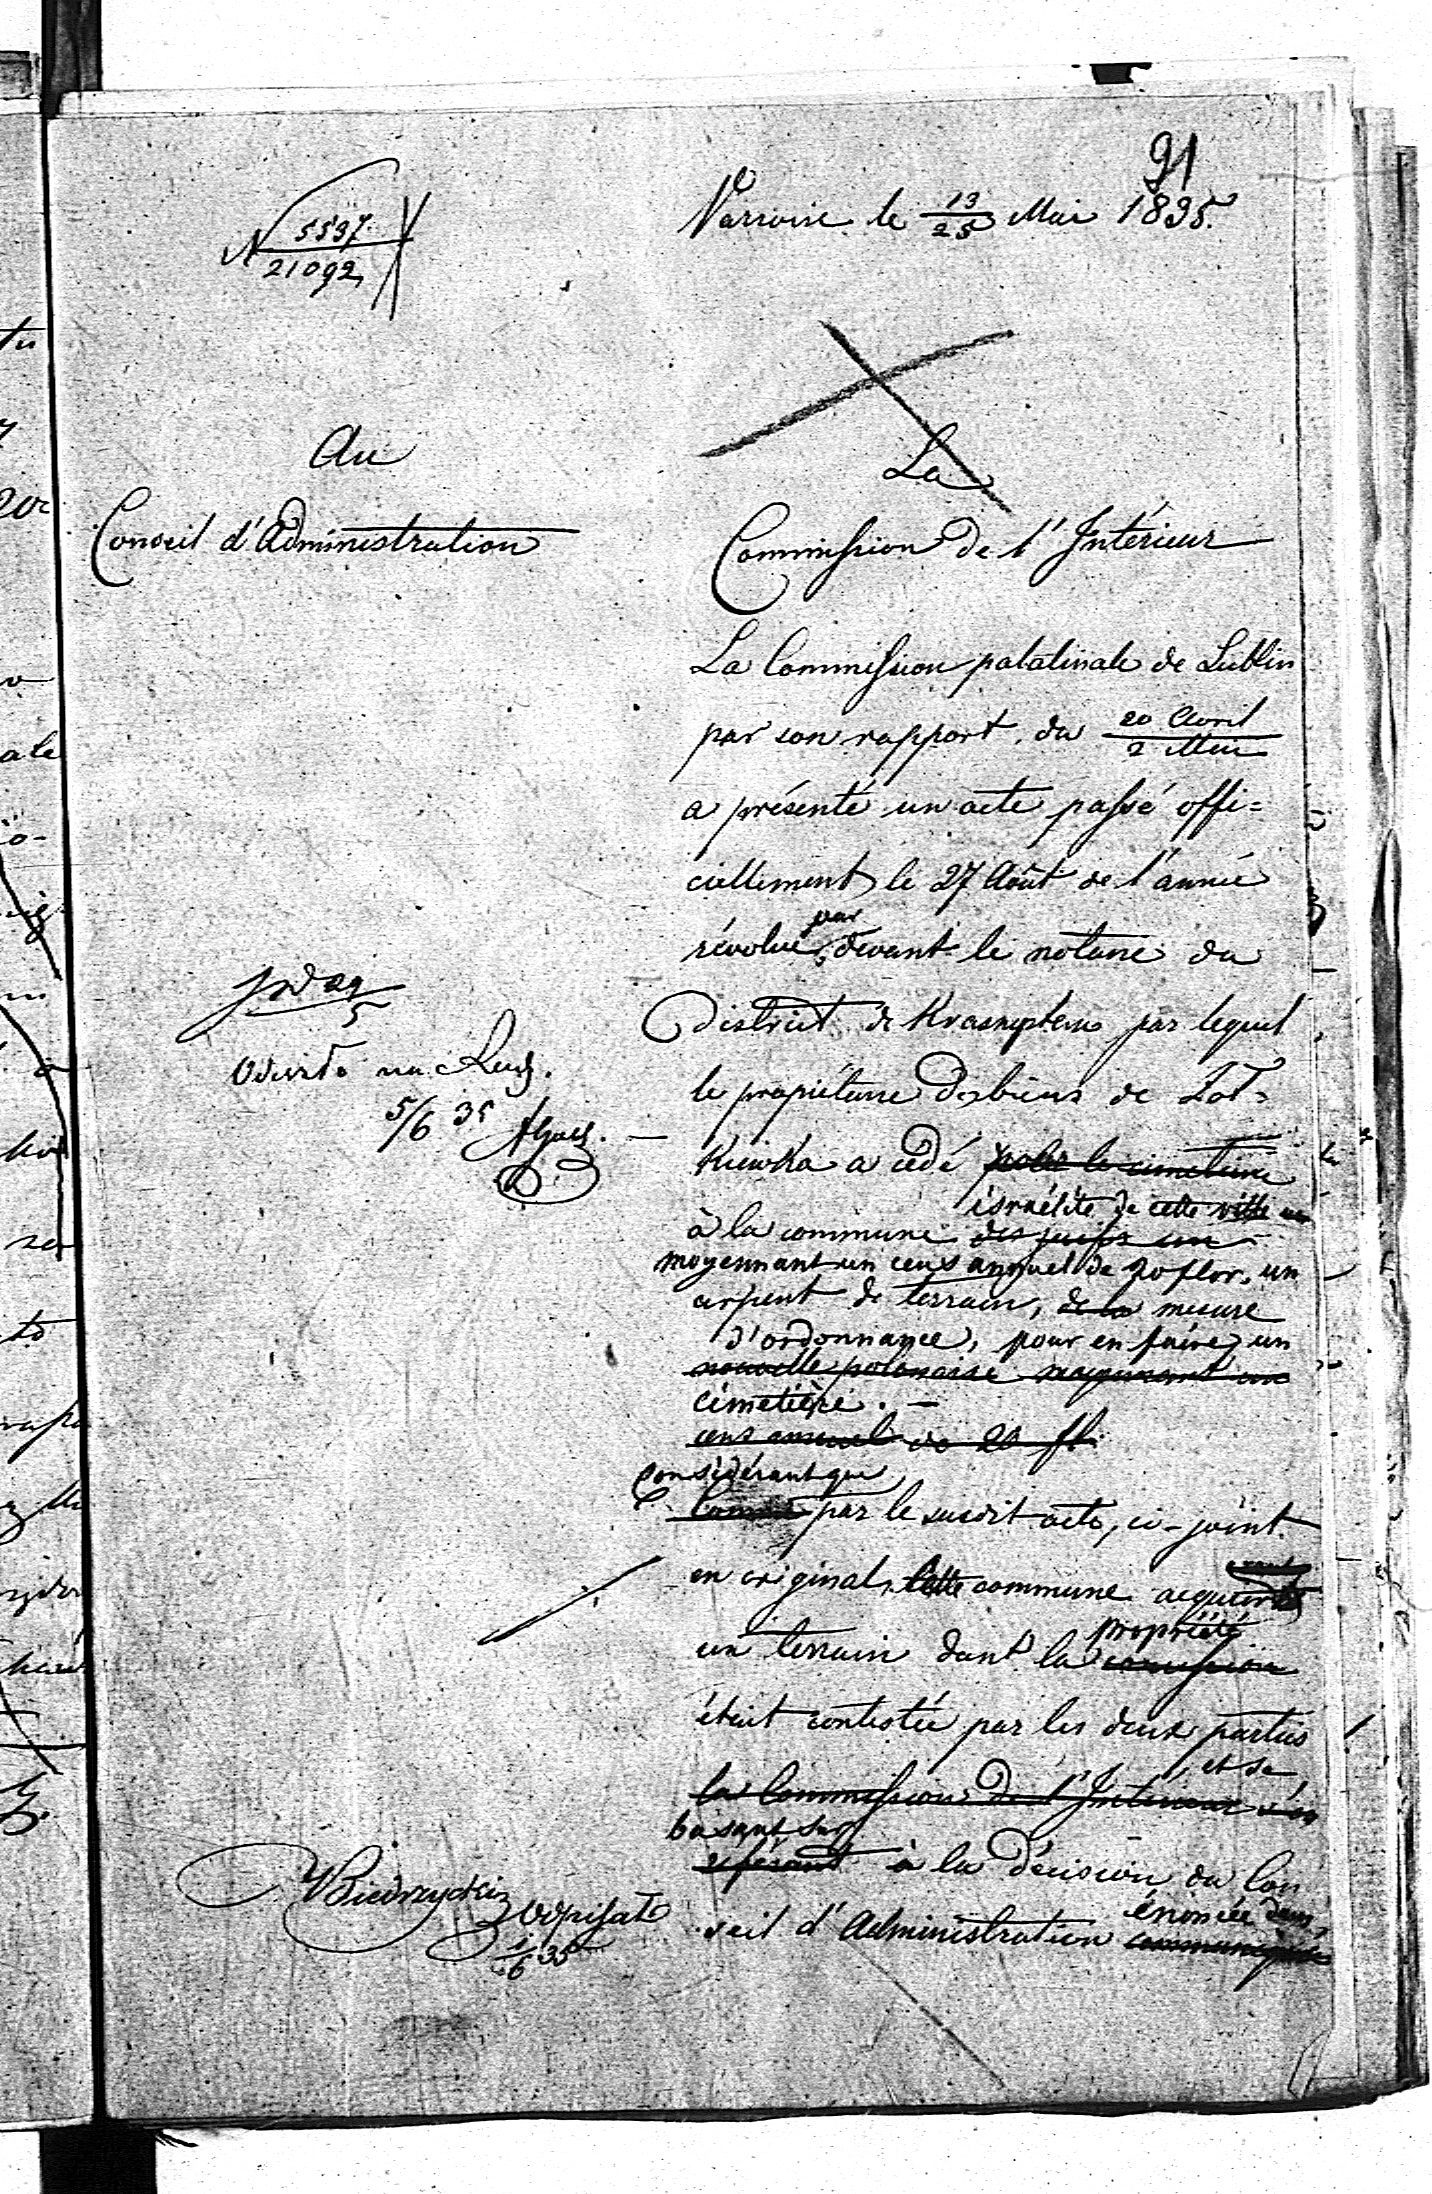 91
N 5537
21092
Varsovie le 13/25 Mai 1835.
Au
Conseil d'Administration
La
Commission de l'Intérieur
La Commission palatinale de Lublin
par son rapport du 20 Avril / 2 Mai
a présenté un acte passé offi=
ciellement le 27 Août de l'année
révolue par devant le notaire du
District de Krasnystaw par lequel
le propriétaire des biens de Zół=
kiewka a cédé pour le cimetière
israélite de cette ville un
à la commune des juifs un
moyennant un cens annuel de 20 flor. un
arpent de terrain, de la mesure
d'ordonnance, pour en faire un
nouvelle polonaise moyennant un
cimetière. —
cens annuel de 20 fl
Considérant que
Comme par le susdit acte, ci-joint
en original, cette commune acquiert
un terrain dont la propriété
était contestée par les deux parties
et se
la Commission de l'Intérieur s'en
basant sur
référant à la décision du Con
seil d'Administration énoncée dans
5/6 35
Odpisał
1/6 35